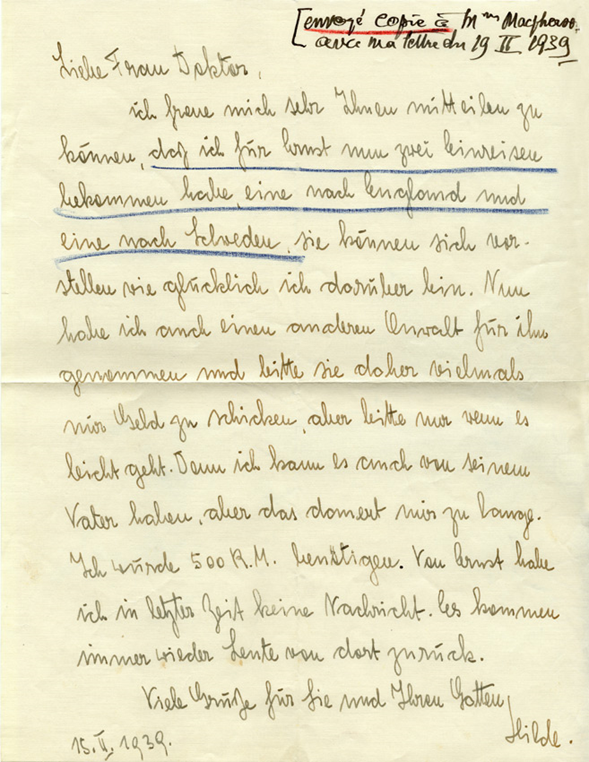 [envoyé copie à Mme Macpherson
avec ma lettre du 19 II 1939
Liebe Frau Doktor,
ich freue mich sehr Ihnen mitteilen zu
können, daß ich für Ernst nun zwei Einreisen
bekommen habe, eine nach England und
eine nach Schweden, sie können sich vor-
stellen wie glücklich ich darüber bin. Nun
habe ich auch einen anderen Anwalt für ihn
genommen und bitte sie daher vielmals
mir Geld zu schicken, aber bitte nur wenn es
leicht geht. Denn ich kann es auch von seinem
Vater haben, aber das dauert mir zu lange.
Ich würde 500 R.M. benötigen. Von Ernst habe
ich in letzter Zeit keine Nachricht. Es kommen
immer wieder Leute von dort zurück.
Viele Grüße für Sie und Ihren Gatten
Hilde.
15. II. 1939.